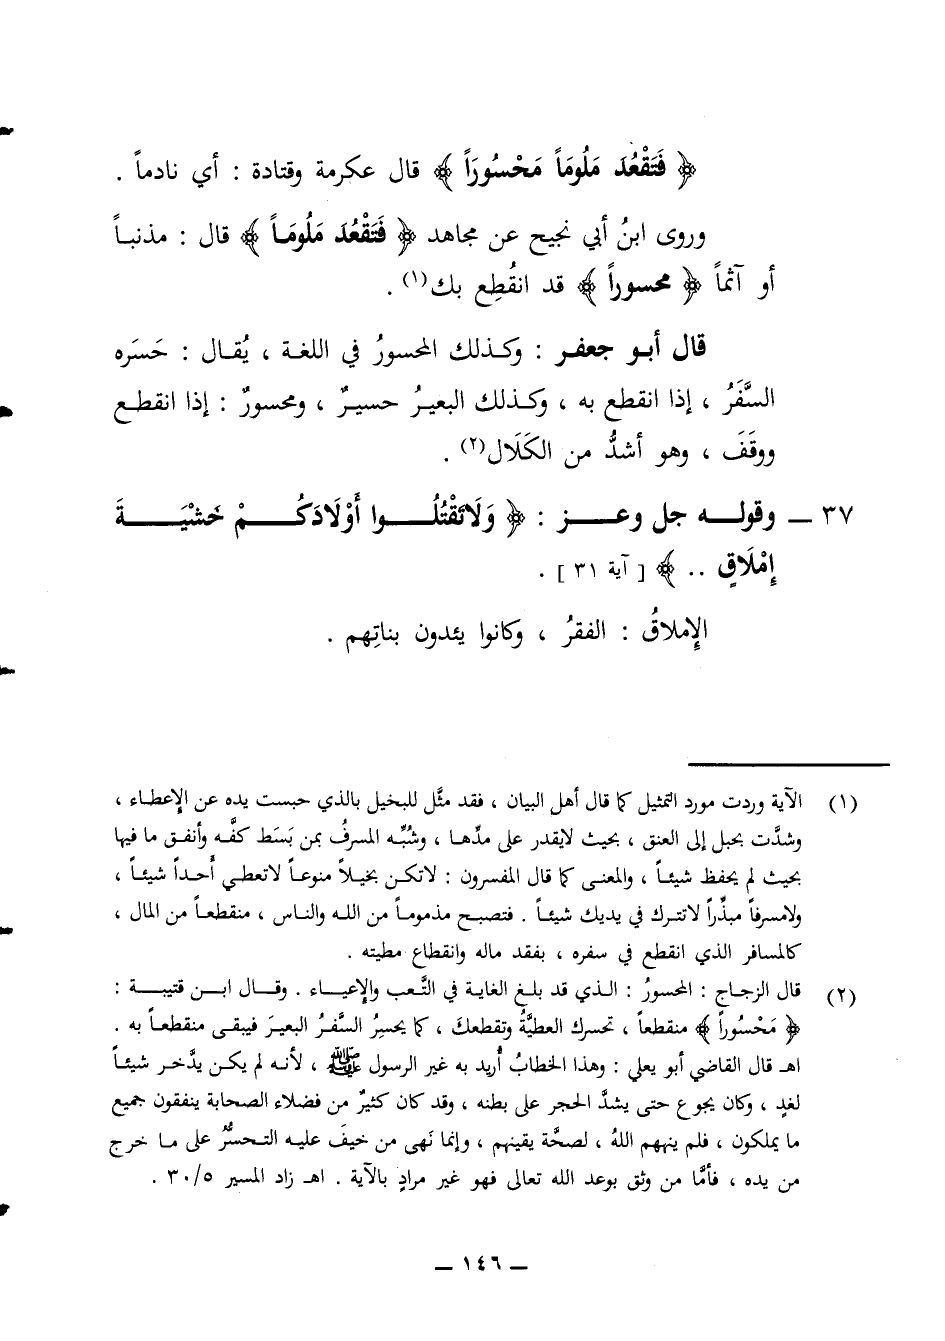 ﴿ فَتَقْعُدَ مَلُوماً مَحْسُورَاً ﴾ قال عكرمة وقتادة : أي نادماً .
وروى ابنُ أبي نجيح عن مجاهد ﴿ فَتَقْعُدَ مَلُومَاً ﴾ قال : مذنباً
أو آثماً ﴿ محسوراً ﴾ قد انقُطِع بك(١) .
قال أبو جعفر : وكذلك المحسورُ في اللغة ، يُقال : حَسَره
السَّفَرُ ، إذا انقطع به ، وكذلك البعيرُ حسيرٌ ، ومحسورٌ : إذا انقطع
ووقَفَ ، وهو أشدُّ من الكَلَال(٢) .
٣٧ – وقوله جل وعز : ﴿ وَلَا تَقْتُلُوا أَوْلَادَكُمْ خَشْيَةَ
إِمْلَاقٍ .. ﴾ [ آية ٣١ ] .
الإِملاقُ : الفقرُ ، وكانوا يئدون بناتِهم .
(١) الآية وردت مورد التمثيل كما قال أهل البيان ، فقد مثَّل للبخيل بالذي حبست يده عن الإِعطاء ،
وشدَّت بحبل إلى العنق ، بحيث لايقدر على مدِّها ، وشُبِّه المسرفُ بمن بَسَط كفَّه وأنفق ما فيها
بحيث لم يحفظ شيئاً ، والمعنى كما قال المفسرون : لاتكن بخيلاً منوعاً لاتعطي أحداً شيئاً ،
ولامسرفاً مبذِّراً لاتترك في يديك شيئاً . فتصبح مذموماً من الله والناس ، منقطعاً من المال ،
كالمسافر الذي انقطع في سفره ، بفقد ماله وانقطاع مطيته .
(٢) قال الزجاج : المحسورُ : الذي قد بلغ الغاية في التَّعب والإِعياء . وقال ابن قتيبة :
﴿ مَحْسُوراً ﴾ منقطعاً ، تحسرك العطيَّةُ وتقطعك ، كما يحسِرُ السَّفرُ البعيرَ فيبقى منقطعاً به .
اهـ قال القاضي أبو يعلي : وهذا الخطابُ أُريد به غير الرسول ﷺ ، لأنه لم يكن يدَّخر شيئاً
لغدٍ ، وكان يجوع حتى يشدَّ الحجر على بطنه ، وقد كان كثيرٌ من فضلاء الصحابة ينفقون جميع
ما يملكون ، فلم ينههم اللهُ ، لصحَّة يقينهم ، وإنما نَهى من خيفَ عليه التحسُّر على ما خرج
من يده ، فأمَّا من وثق بوعد الله تعالى فهو غير مرادٍ بالآية . اهـ زاد المسير ٣٠/٥ .
– ١٤٦ –